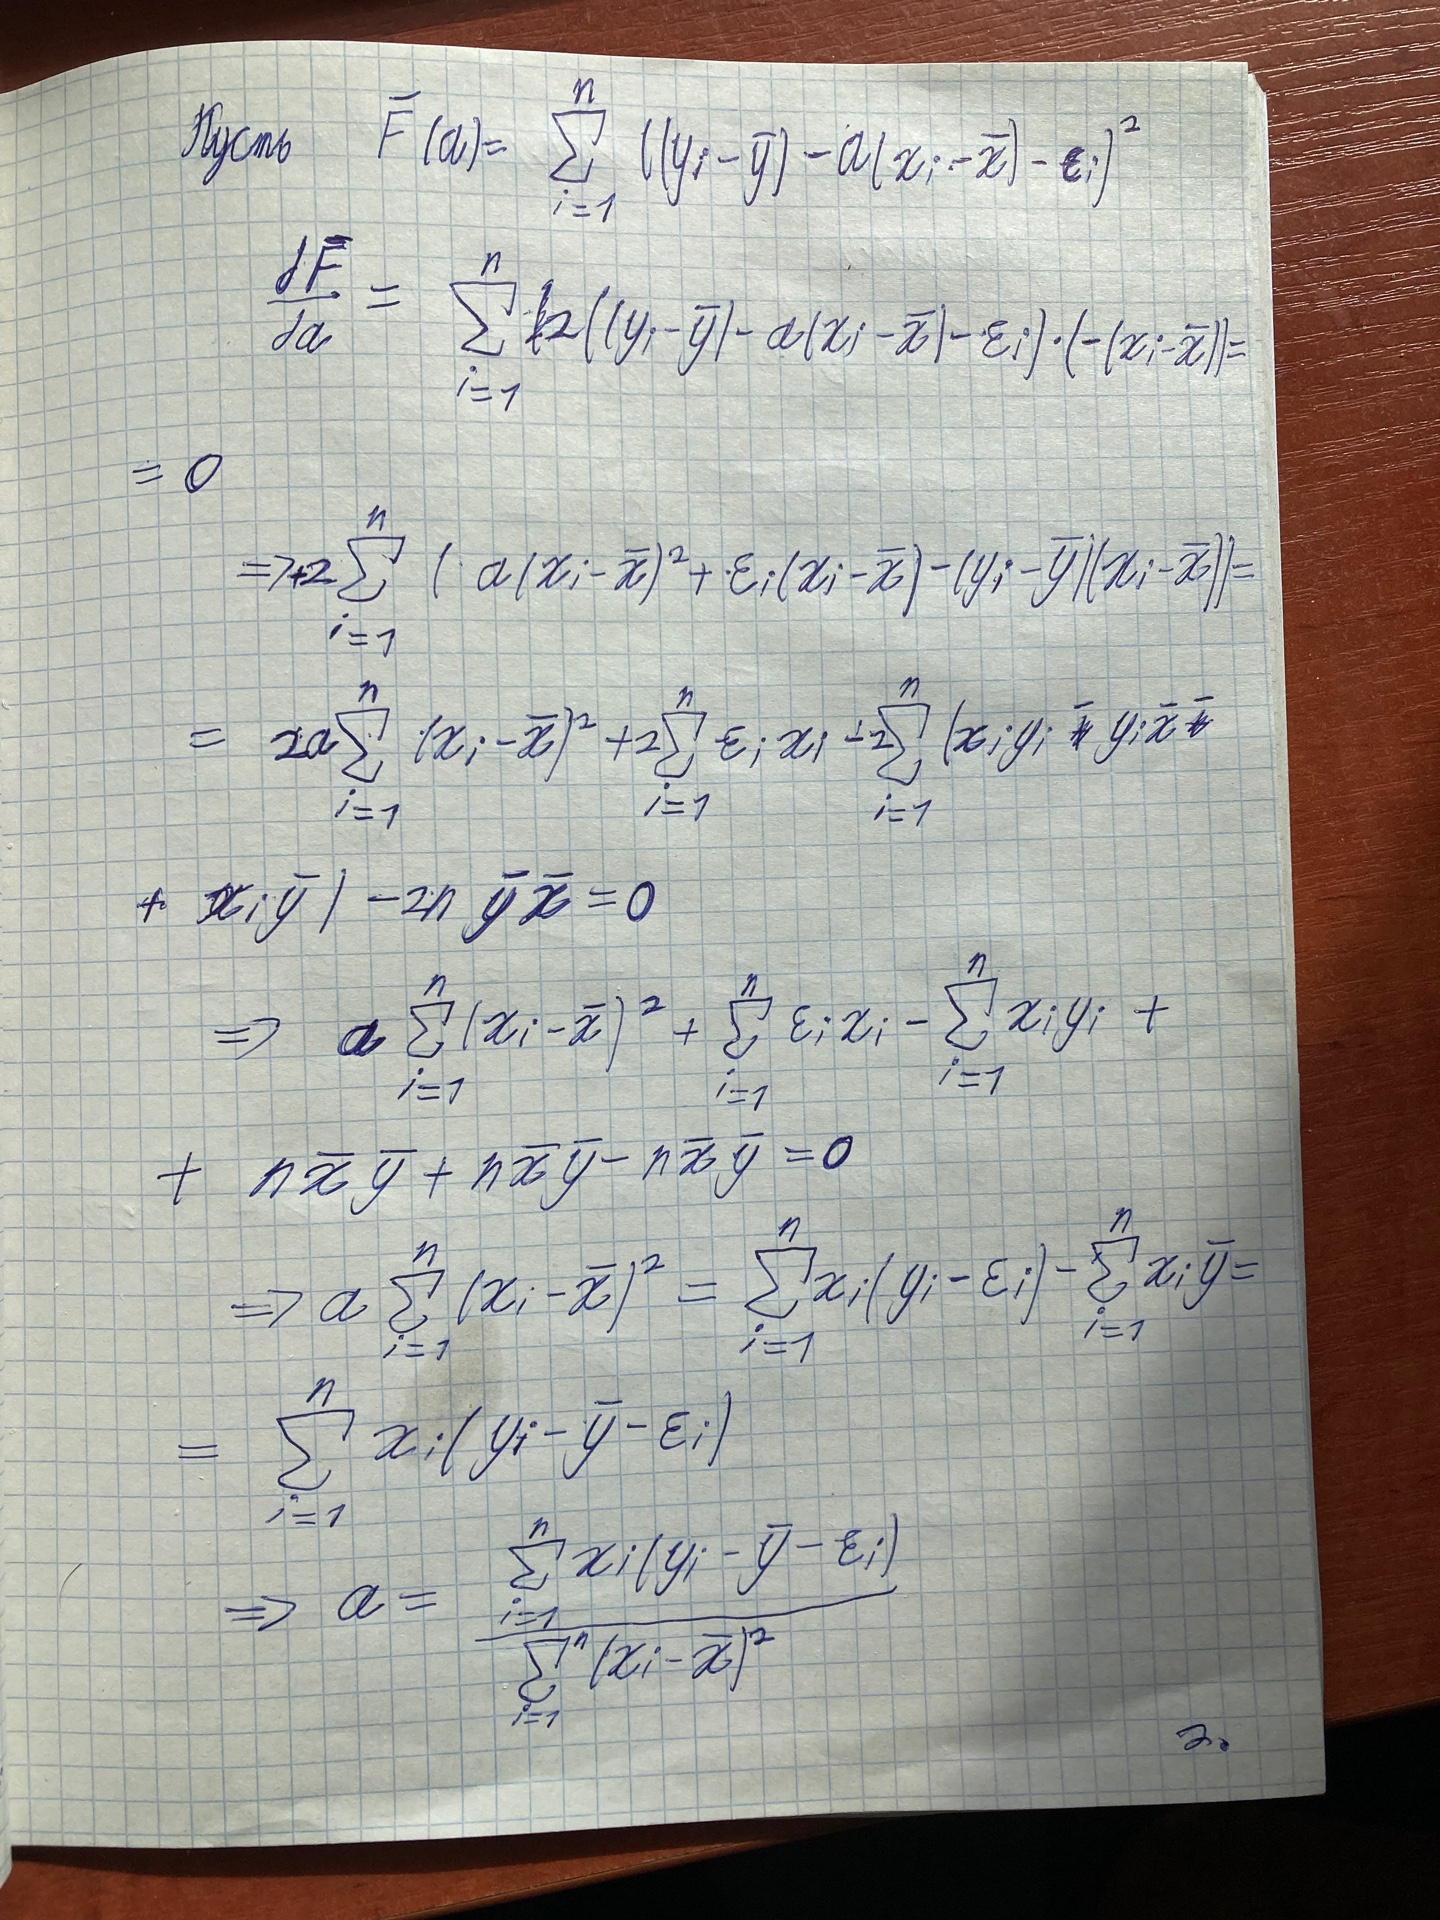 Пусть F̄(a) = ∑_{i=1}^{n} ((yᵢ - ȳ) - a(xᵢ - x̄) - εᵢ)²
dF̄/da = ∑_{i=1}^{n} 2((yᵢ - ȳ) - a(xᵢ - x̄) - εᵢ)·(-(xᵢ - x̄)) =
= 0
=> +2 ∑_{i=1}^{n} (a(xᵢ - x̄)² + εᵢ(xᵢ - x̄) - (yᵢ - ȳ)(xᵢ - x̄)) =
= 2a ∑_{i=1}^{n} (xᵢ - x̄)² + 2 ∑_{i=1}^{n} εᵢ xᵢ 2 ∑_{i=1}^{n} (xᵢ yᵢ yᵢ x̄
+ xᵢ ȳ) - 2n ȳ x̄ = 0
=> a ∑_{i=1}^{n} (xᵢ - x̄)² + ∑_{i=1}^{n} εᵢ xᵢ - ∑_{i=1}^{n} xᵢ yᵢ +
+ n x̄ ȳ + n x̄ ȳ - n x̄ ȳ = 0
=> a ∑_{i=1}^{n} (xᵢ - x̄)² = ∑_{i=1}^{n} xᵢ(yᵢ - εᵢ) - ∑_{i=1}^{n} xᵢ ȳ =
= ∑_{i=1}^{n} xᵢ(yᵢ - ȳ - εᵢ)
=> a = ∑_{i=1}^{n} xᵢ(yᵢ - ȳ - εᵢ) / ∑_{i=1}^{n} (xᵢ - x̄)²
2.